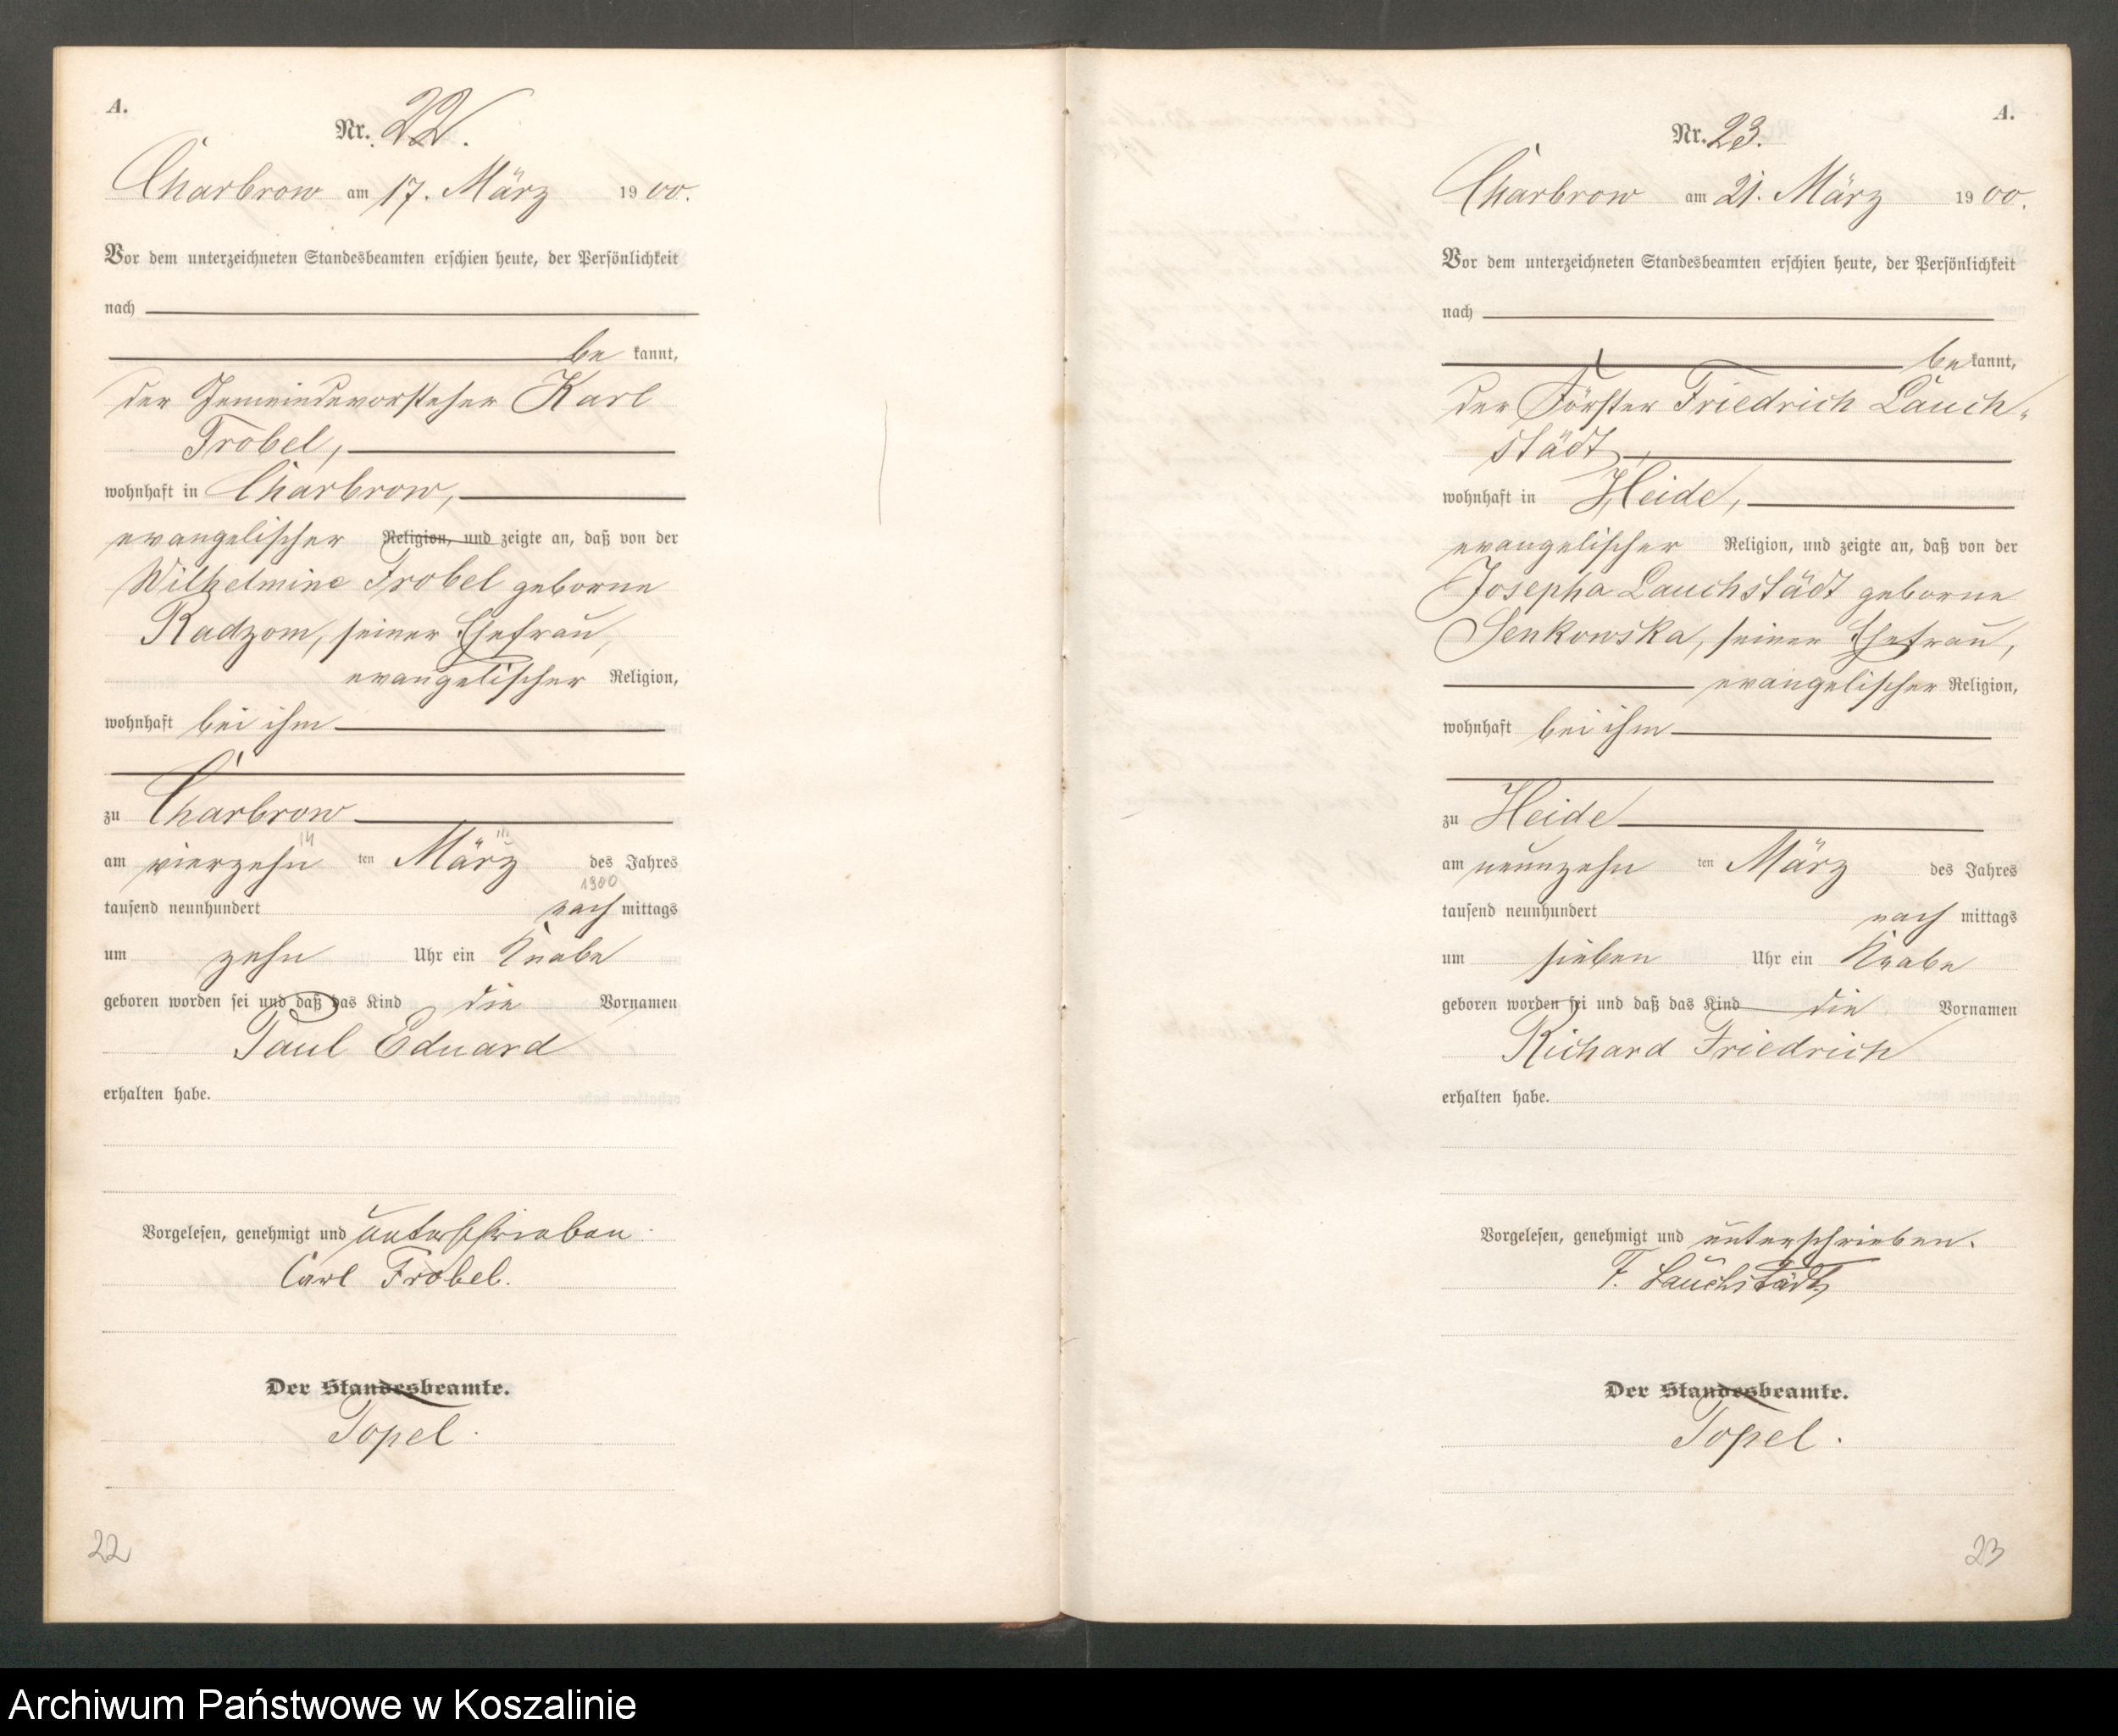 A.
Nr. 22.
Charbrow am 17. März 1900.
Vor dem unterzeichneten Standesbeamten erschien heute, der Persönlichkeit
nach
be kannt,
der Gemeindevorsteher Karl
Frobel,
wohnhaft in Charbrow,
evangelischer Religion, und zeigte an, daß von der
Wilhelmine Frobel geborne
Radzom, seiner Ehefrau,
evangelischer Religion,
wohnhaft bei ihm
zu Charbrow
14 III
am vierzehn ten März des Jahres
1900
tausend neunhundert nach mittags
um zehn Uhr ein Knabe
geboren worden sei und daß das Kind die Vornamen
Paul Eduard
erhalten habe.
Vorgelesen, genehmigt und unterschrieben
Carl Frobel.
Der Standesbeamte.
Topel.
22
A.
Nr. 23.
Charbrow am 21. März 1900.
Vor dem unterzeichneten Standesbeamten erschien heute, der Persönlichkeit
nach
be kannt,
der Förster Friedrich Lauch-
städt,
wohnhaft in Heide,
evangelischer Religion, und zeigte an, daß von der
Josepha Lauchstädt geborne
Senkowska, seiner Ehefrau,
evangelischer Religion,
wohnhaft bei ihm
zu Heide
am neunzehn ten März des Jahres
tausend neunhundert nach mittags
um sieben Uhr ein Knabe
geboren worden sei und daß das Kind die Vornamen
Richard Friedrich
erhalten habe.
Vorgelesen, genehmigt und unterschrieben.
F. Lauchstädt
Der Standesbeamte.
Topel.
23
Archiwum Państwowe w Koszalinie